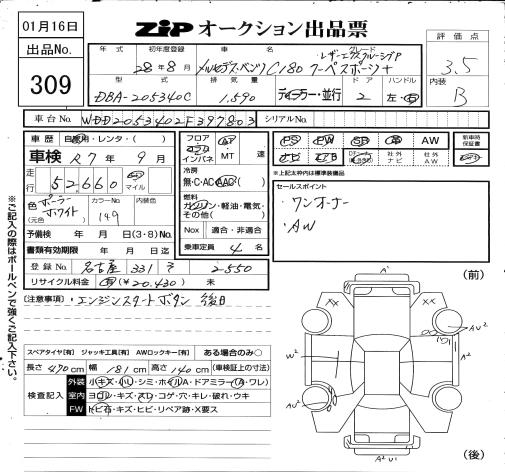 01月16日
ZIP オークション出品票
出品No.
309
年式 初年度登録 車名 グレード
28年8月 メルセデス・ベンツ C180 レザーエクスクルーシブP
クーペスポーツ+
型式 排気量 ドア ハンドル
DBA-205340C 1,590 ディーラー・並行 2 左・右
評価点
3.5
内装
B
車台No. WDD2053402F397803 シリアルNo.
車歴 自家用・レンタ・( )
車検 R7年 9月
走行 52,660 km マイル
色 ポーラーホワイト カラーNo. 149 内装色
(元色)
予備検 年 月 日(3・8)No.
書類有効期限 年 月 日迄
登録No. 名古屋 331 2550
リサイクル料金 (¥20,430) 未
フロア コラム インパネ AT MT 速
冷房
無・C・AC・AAC
燃料
ガソリン・軽油・電気・その他( )
Nox 適合・非適合
乗車定員 4名
PS PW SR AW
ナビ 社外ナビ 社外AW
新車時保証書
※上記太枠内は標準装備品
セールスポイント
・ワンオーナー
・AW
(注意事項)・エンジンスタートボタン 後日
※ご記入の際はボールペンで強くご記入下さい。
スペアタイヤ[有] ジャッキ工具[有] AWロックキー[有] ある場合のみ○
長さ 470cm 幅 181cm 高さ 140cm (車検証上の寸法)
検査記入
外装 小キズ・小凹・シミ・ホイルA・ドアミラー(A・ワレ)
室内 ヨゴレ・キズ・スレ・コゲ・穴・キレ・破れ・ウキ
FW トビ石・キズ・ヒビ・リペア跡・X要ス
(前)
A¹
XX XX
AU² AU²
W² A²
A²U¹
(後)